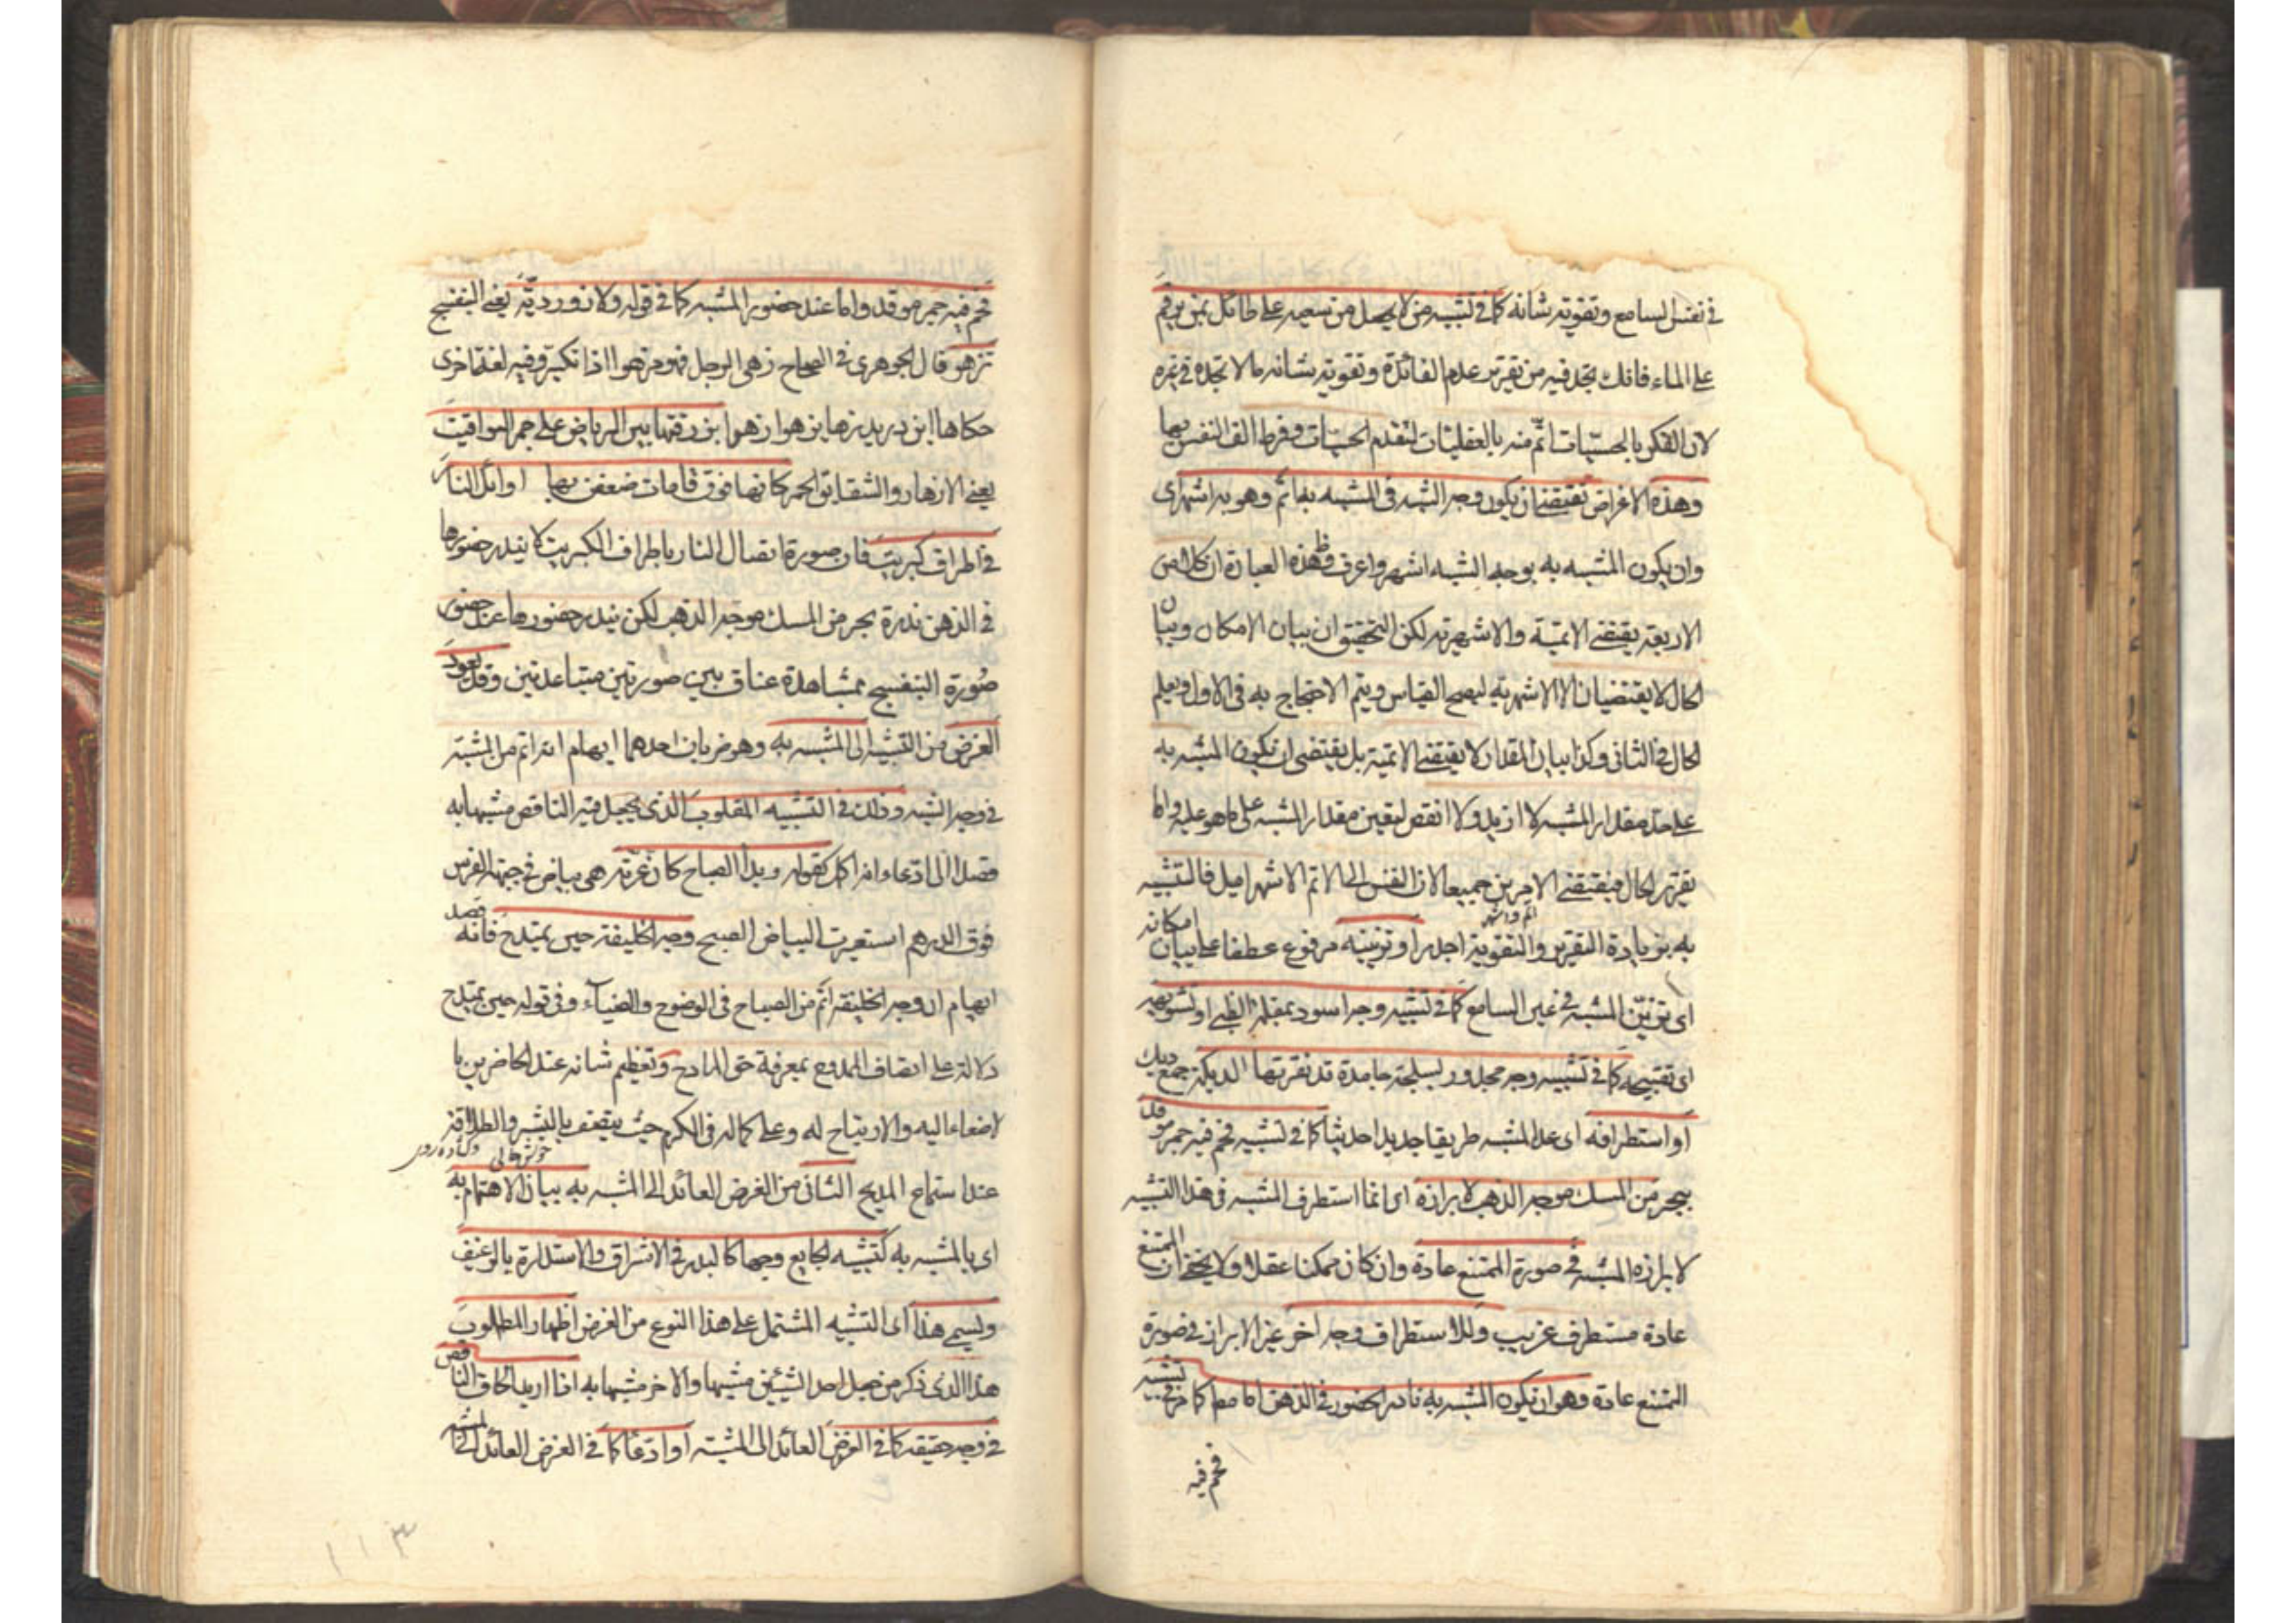 في نفس السامع وتقوية شانه كما في تشبيه من لا يحصل من سعيه على طائل بمن يرقم
على الماء فانك تجد فيه من تقرير عدم الفائدة وتقوية شانه ما لا تجده في غيره
لان الفكر بالحسيات اتم منه بالعقليات لتقدم الحسيات وفرط الف النفس بها
وهذه الاغراض تقتضي ان يكون وجه الشبه في المشبه به اتم وهو به اشهر اى
وان يكون المشبه به بوجه الشبه اشهر واعرف فظ هذه العبارة ان كلا من
الاربعة يقتضي الاتمية والاشهرية لكن التحقيق ان بيان الامكان وبيان
الحال لا يقتضيان الا الاشهرية ليصح القياس ويتم الاحتجاج به في الاول ويعلم
الحال في الثاني وكذا بيان المقدار لا يقتضي الاتمية بل يقتضي ان يكون المشبه به
على حد مقدار المشبه لا ازيد ولا انقص ليتعين مقدار المشبه على ما هو عليه واما
تقرير الحال فيقتضي الامرين جميعا لان النفس الى الاتم الاشهر اميل فالتشبيه
اتم واشهر
به بزيادة التقرير والتقوية اجدر او تزيينه مرفوع عطفا على بيان امكانه
اى تزيين المشبه في عين السامع كما في تشبيه وجه اسود بمقلة الظبي او تشويهه
اى تقبيحه كما في تشبيه وجه مجدور بسلحة جامدة قد نقرتها الديكة جمع ديك
او استطرافه اى عد المشبه طريفا جديدا حديثا كما في تشبيه فحم فيه جمر موقد
ببحر من المسك موجه الذهب لابرازه اى انما استطرف المشبه في هذا التشبيه
لابرازه المشبه في صورة الممتنع عادة وان كان ممكنا عقلا ولا يخفى ان الممتنع
عادة مستطرف غريب وللاستطراف وجه اخر غير الابراز في صورة
الممتنع عادة وهو ان يكون المشبه به نادر الحضور في الذهن اما مطلقا كما مر في تشبيه
فحم فيه
فحم فيه جمر موقد واما عند حضور المشبه كما في قوله ولازوردية يعني البنفسج
تزهو قال الجوهرى في الصحاح زهى الرجل فهو مزهو اذا تكبر وفيه لغة اخرى
حكاها ابن دريد زها يزهو زهوا بزرقتها بين الرياض على حمر اليواقيت
يعني الازهار والشقايق الحمر كانها فوق قامات ضعفن بها اوائل النار
في اطراف كبريت فان صورة اتصال النار باطراف الكبريت لا يندر حضورها
في الذهن ندرة بحر من المسك موجه الذهب لكن يندر حضورها عند حضور
صورة البنفسج بمشاهدة عناق بين صورتين متباعدتين وقد يعود
الغرض من التشبيه الى المشبه به وهو ضربان احدهما ايهام انه اتم من المشبه
في وجه الشبه وذلك في التشبيه المقلوب الذى يجعل فيه الناقص مشبها به
قصدا الى ادعاء انه اكمل كقوله وبدا الصباح كان غرته هي بياض في جبهة الفرس
فوق الدرهم استعيرت لبياض الصبح وجه الخليفة حين يمتدح فانه قصد
ايهام ان وجه الخليفة اتم من الصباح في الوضوح والضياء وفي قوله حين يمتدح
دلالة على اتصاف الممدوح بمعرفة حق المادح وتعظيم شانه عند الحاضرين با
لاصغاء اليه والارتياح له وعلى كماله في الكرم حيث يتصف بالبشر والطلاقة
خوش حالى
عند استماع المديح الثاني من الغرض العائد الى المشبه به بيان الاهتمام به
اى بالمشبه به كتشبيه الجايع وجها كالبدر في الاشراق والاستدارة بالرغيف
ويسمى هذا اى التشبيه المشتمل على هذا النوع من الغرض اظهار المطلوب
هذا الذى ذكر من جعل احد الشيئين مشبها والاخر مشبها به اذا اريد الحاق الناقص
في وجه حقيقة كما في الغرض العائد الى المشبه او ادعاء كما في الغرض العائد الى المشبه
١١٣